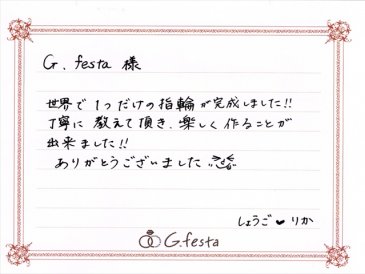 G. festa 様
世界で1つだけの指輪が完成しました!!
丁寧に教えて頂き、楽しく作ることが
出来ました!!
ありがとうございました
しょうご♥りか
G.festa